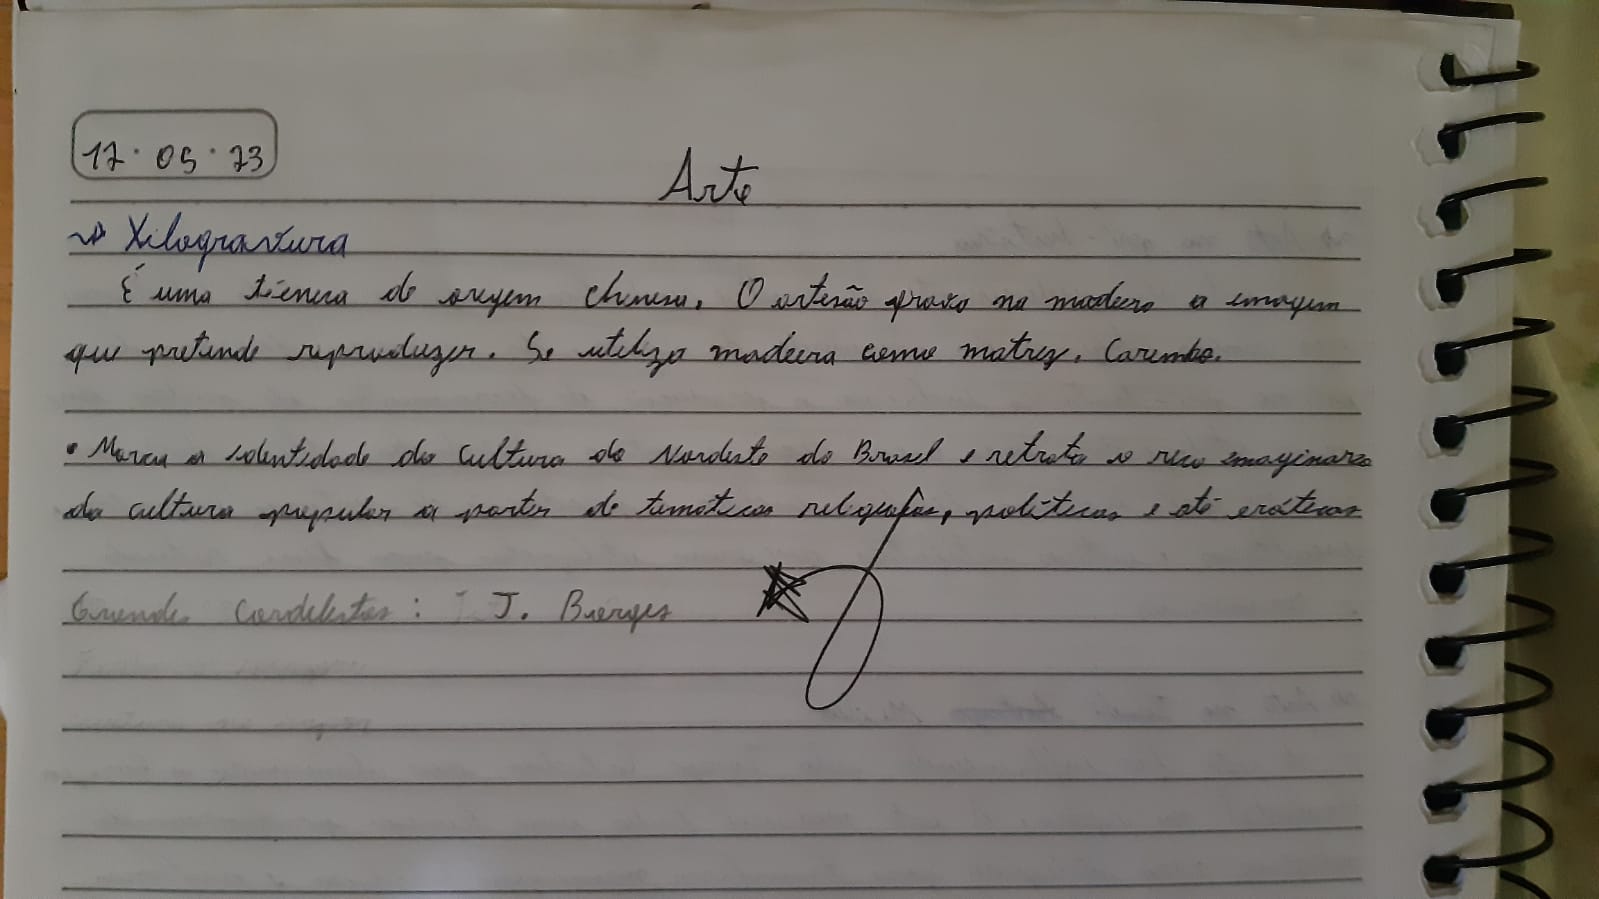 17.05.23
Arte
Xilogravura
É uma técnica de origem chinesa. O artesão grava na madeira a imagem
que pretende reproduzir. Se utiliza madeira como matriz. Carimbo.
• Marca a identidade da cultura do Nordeste do Brasil e retrata o rico imaginário
da cultura popular a partir de temáticas religiosas, políticas e até eróticas
Grandes Cordelistas: J. Borges